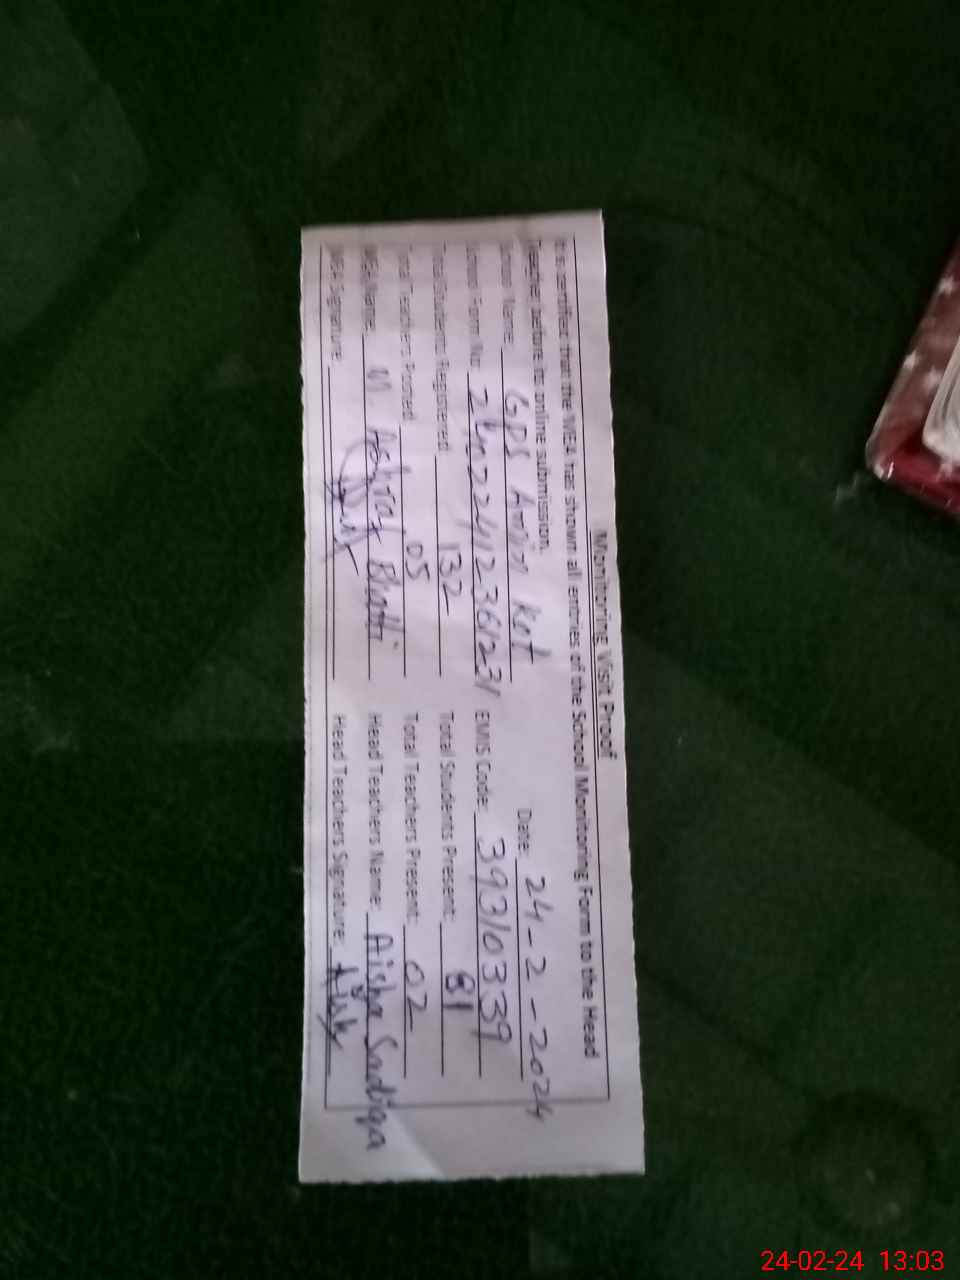 Monitoring Visit Proof
It is certified that the MEA has shown all entries of the School Monitoring Form to the Head
Teacher before its online submission.
Date: 24-2-2024
School Name: GPS Amin Kot
School Form No: EMIS Code: 39310339
Total Students Registered 132 Total Students Present: 81
Total Teachers Posted 05 Total Teachers Present: 02
MEA Name: M Ashraf Bhatti Head Teachers Name: Aisha Sadiqa
MEA Signature: Head Teachers Signature:
24-02-24 13:03